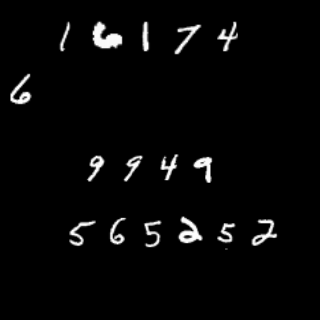 16174
6
9949
565252